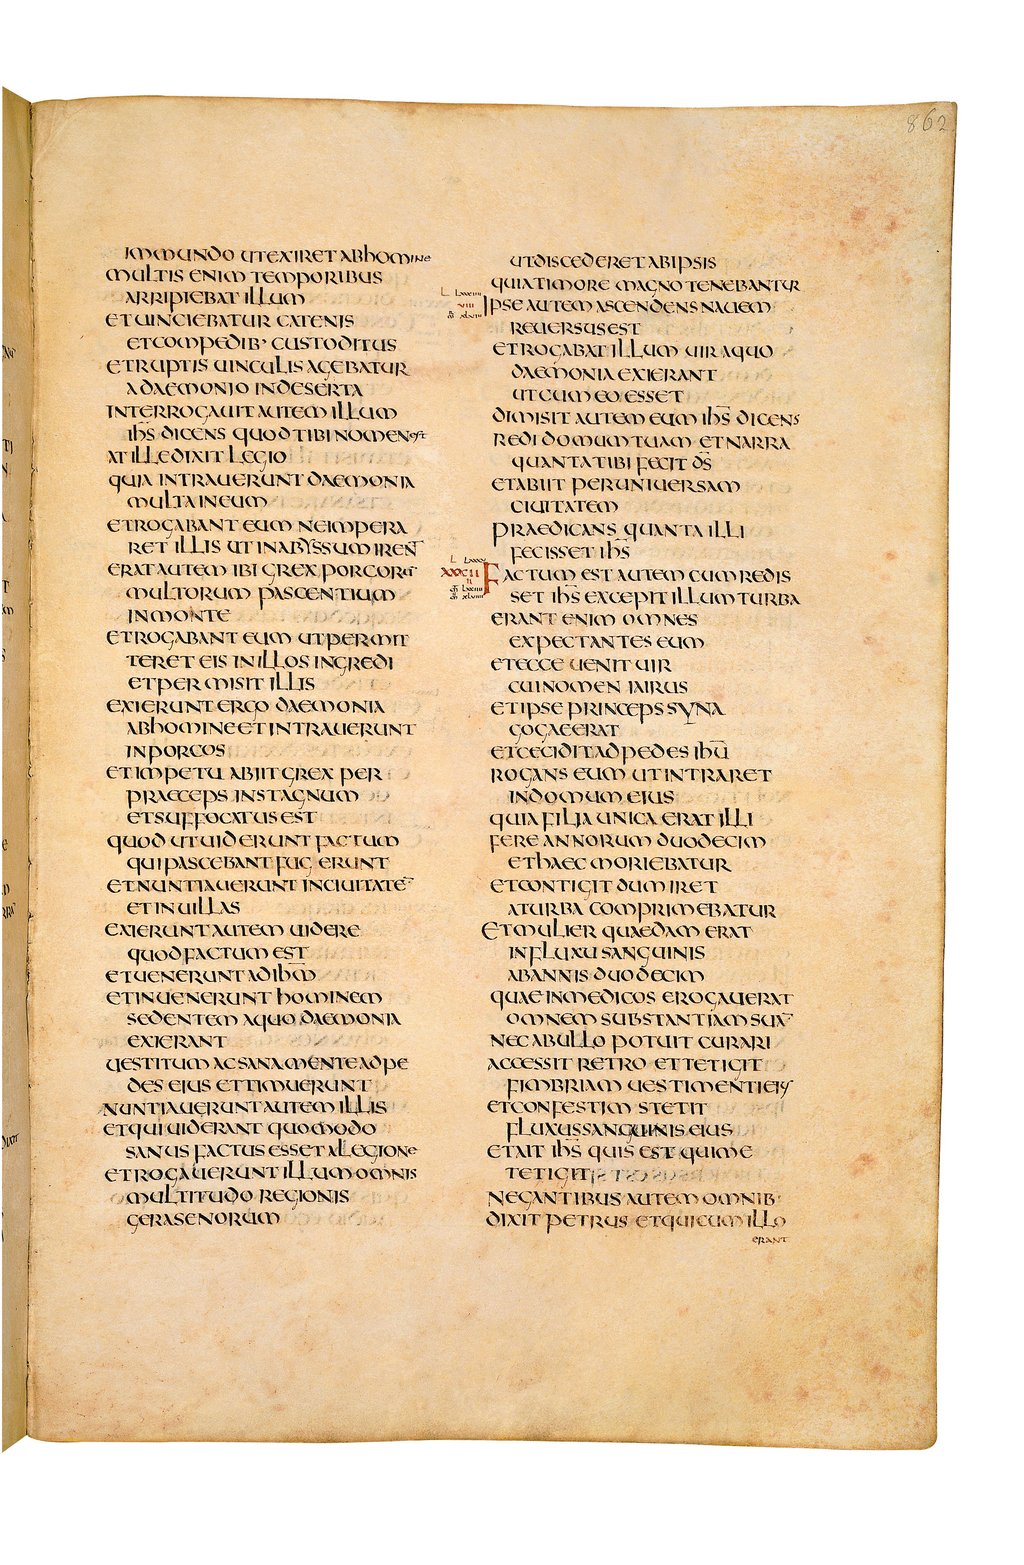 862
IMMUNDO UT EXIRET AB hOMINE
MULTIS ENIM TEMPORIBUS
ARRIPIEBAT ILLUM
ET UINCIEBATUR CATENIS
ET COMPEDIB· CUSTODITUS
ET RUPTIS UINCULIS AGEBATUR
A DAEMONIO IN DESERTA
INTERROGAUIT AUTEM ILLUM
IhS̅ DICENS QUOD TIBI NOMEN est
AT ILLE DIXIT LEGIO
QUIA INTRAUERUNT DAEMONIA
MULTA IN EUM
ET ROGABANT EUM NE IMPERA
RET ILLIS UT IN ABYSSUM IREN̅T
ERAT AUTEM IBI GREX PORCORU̅
MULTORUM PASCENTIUM
IN MONTE
ET ROGABANT EUM UT PERMIT
TERET EIS IN ILLOS INGREDI
ET PERMISIT ILLIS
EXIERUNT ERGO DAEMONIA
AB hOMINE ET INTRAUERUNT
IN PORCOS
ET IMPETU ABIIT GREX PER
PRAECEPS IN STAGNUM
ET SUFFOCATUS EST
QUOD UT UIDERUNT FACTUM
QUI PASCEBANT FUGERUNT
ET NUNTIAUERUNT IN CIUITATE̅
ET IN UILLAS
EXIERUNT AUTEM UIDERE
QUOD FACTUM EST
ET UENERUNT AD Ihm̅
ET INUENERUNT hOMINEM
SEDENTEM A QUO DAEMONIA
EXIERANT
UESTITUM AC SANA MENTE AD PE
DES EIUS ET TIMUERUNT
NUNTIAUERUNT AUTEM ILLIS
ET QUI UIDERANT QUOMODO
SANUS FACTUS ESSET A LEGIONE
ET ROGAUERUNT ILLUM OMNIS
MULTITUDO REGIONIS
GERASENORUM
UT DISCEDERET AB IPSIS
QUIA TIMORE MAGNO TENEBANTUR
IPSE AUTEM ASCENDENS NAUEM
REUERSUS EST
ET ROGABAT ILLUM UIR A QUO
DAEMONIA EXIERANT
UT CUM EO ESSET
DIMISIT AUTEM EUM IhS̅ DICENS
REDI DOMUM TUAM ET NARRA
QUANTA TIBI FECIT DS̅
ET ABIIT PER UNIUERSAM
CIUITATEM
PRAEDICANS QUANTA ILLI
FECISSET IhS̅
FACTUM EST AUTEM CUM REDIS
SET IhS̅ EXCEPIT ILLUM TURBA
ERANT ENIM OMNES
EXPECTANTES EUM
ET ECCE UENIT UIR
CUI NOMEN IAIRUS
ET IPSE PRINCEPS SYNA
GOGAE ERAT
ET CECIDIT AD PEDES IhU̅
ROGANS EUM UT INTRARET
IN DOMUM EIUS
QUIA FILIA UNICA ERAT ILLI
FERE ANNORUM DUODECIM
ET hAEC MORIEBATUR
ET CONTIGIT DUM IRET
A TURBA COMPRIMEBATUR
ET MULIER QUAEDAM ERAT
IN FLUXU SANGUINIS
AB ANNIS DUODECIM
QUAE IN MEDICOS EROGAUERAT
OMNEM SUBSTANTIAM SUA̅
NEC AB ULLO POTUIT CURARI
ACCESSIT RETRO ET TETIGIT
FIMBRIAM UESTIMENTI EIUS
ET CONFESTIM STETIT
FLUXUS SANGUINIS EIUS
ET AIT IhS̅ QUIS EST QUI ME
TETIGIT
NEGANTIBUS AUTEM OMNIB·
DIXIT PETRUS ET QUI CUM ILLO
ERANT